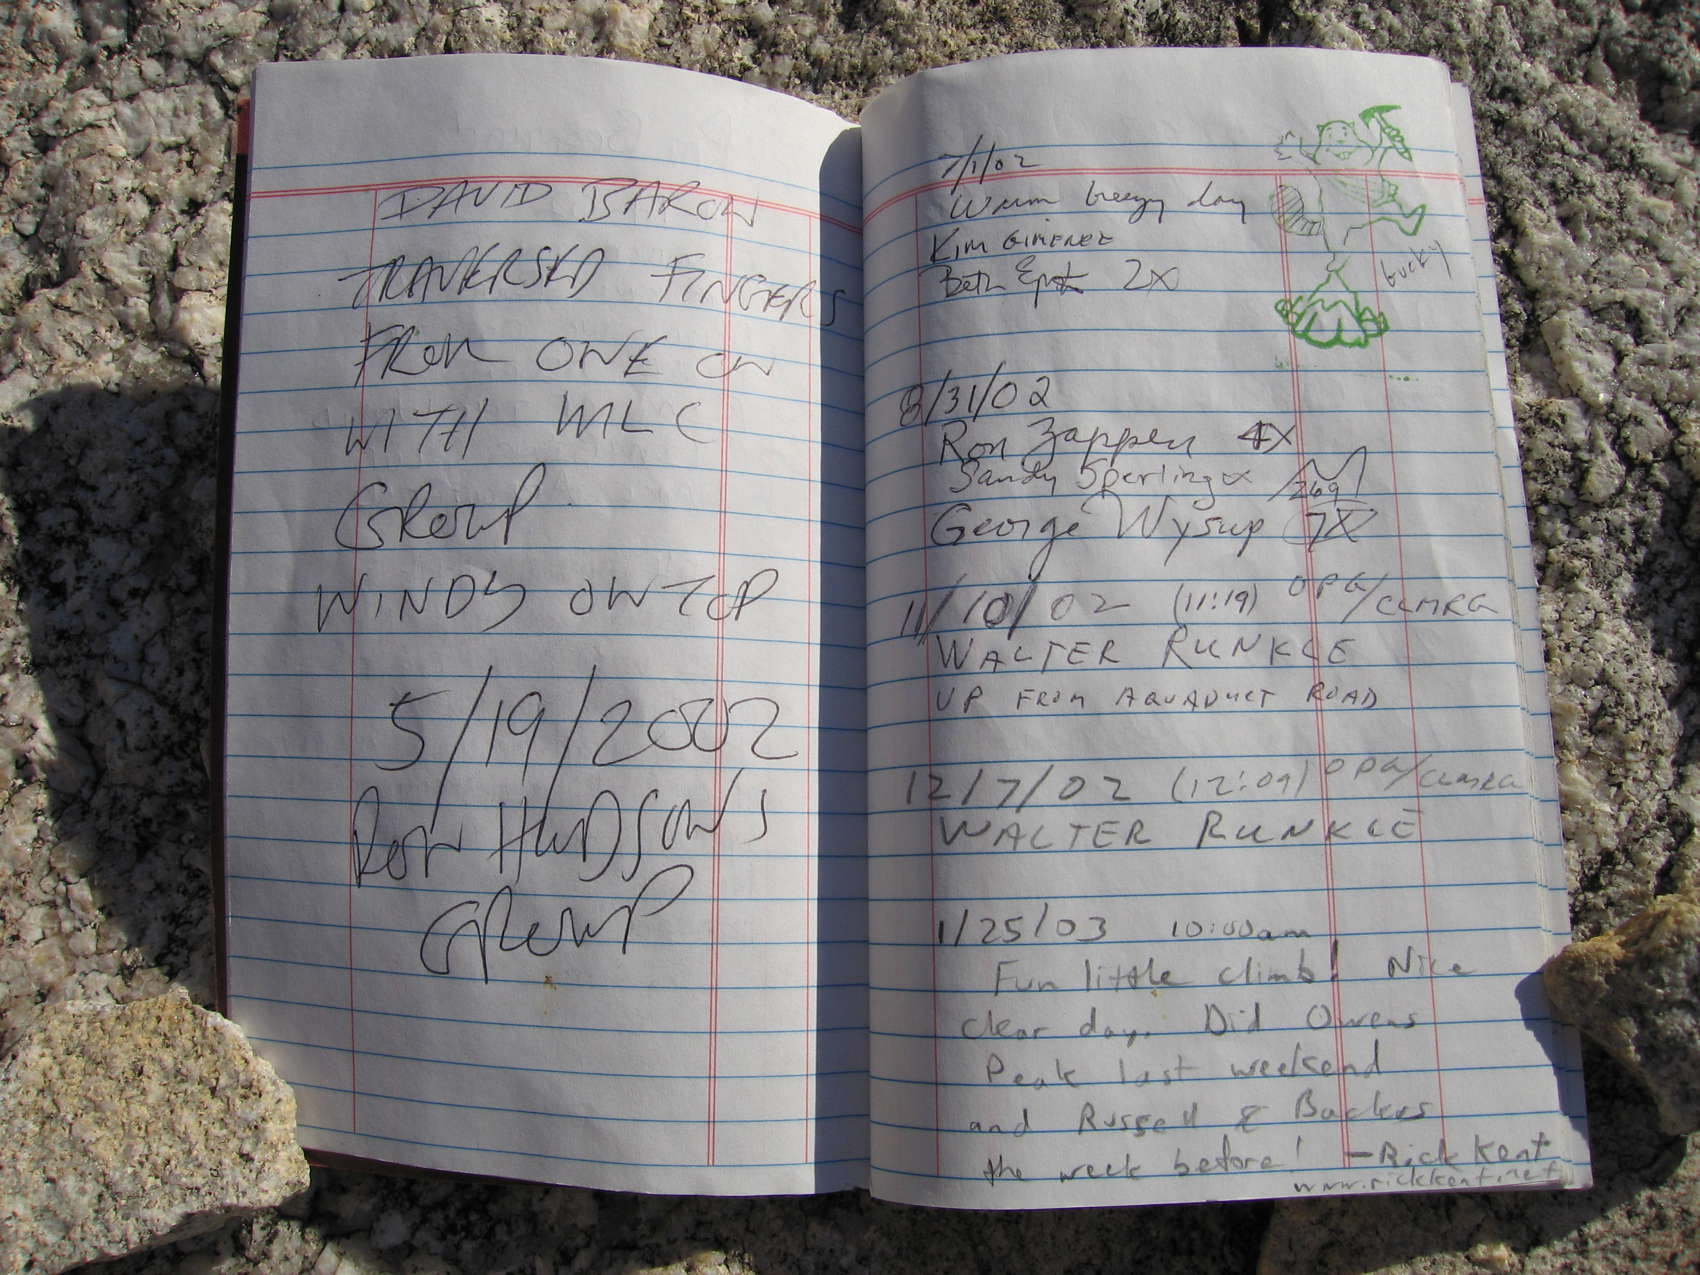 DAVID BARON
TRAVERSED FINGERS
FROM ONE ON
WITH WLC
GROUP
WINDY ON TOP
5/19/2002
RON HUDSON'S
GROUP
7/1/02
Warm breezy day
Kim Gimenez
Beth 2X
bucky
8/31/02
Ron Zappen 4X
Sandy Sperling
269
George Wysup 7X
11/10/02 (11:19) OPG/CLMRG
WALTER RUNKLE
UP FROM AQUADUCT ROAD
12/7/02 (12:09) OPG/CLMRG
WALTER RUNKLE
1/25/03 10:00am
Fun little climb! Nice
clear day. Did Owens
Peak last weekend
and Russell & Backus
the week before! -Rick Kent
www.rickkent.net